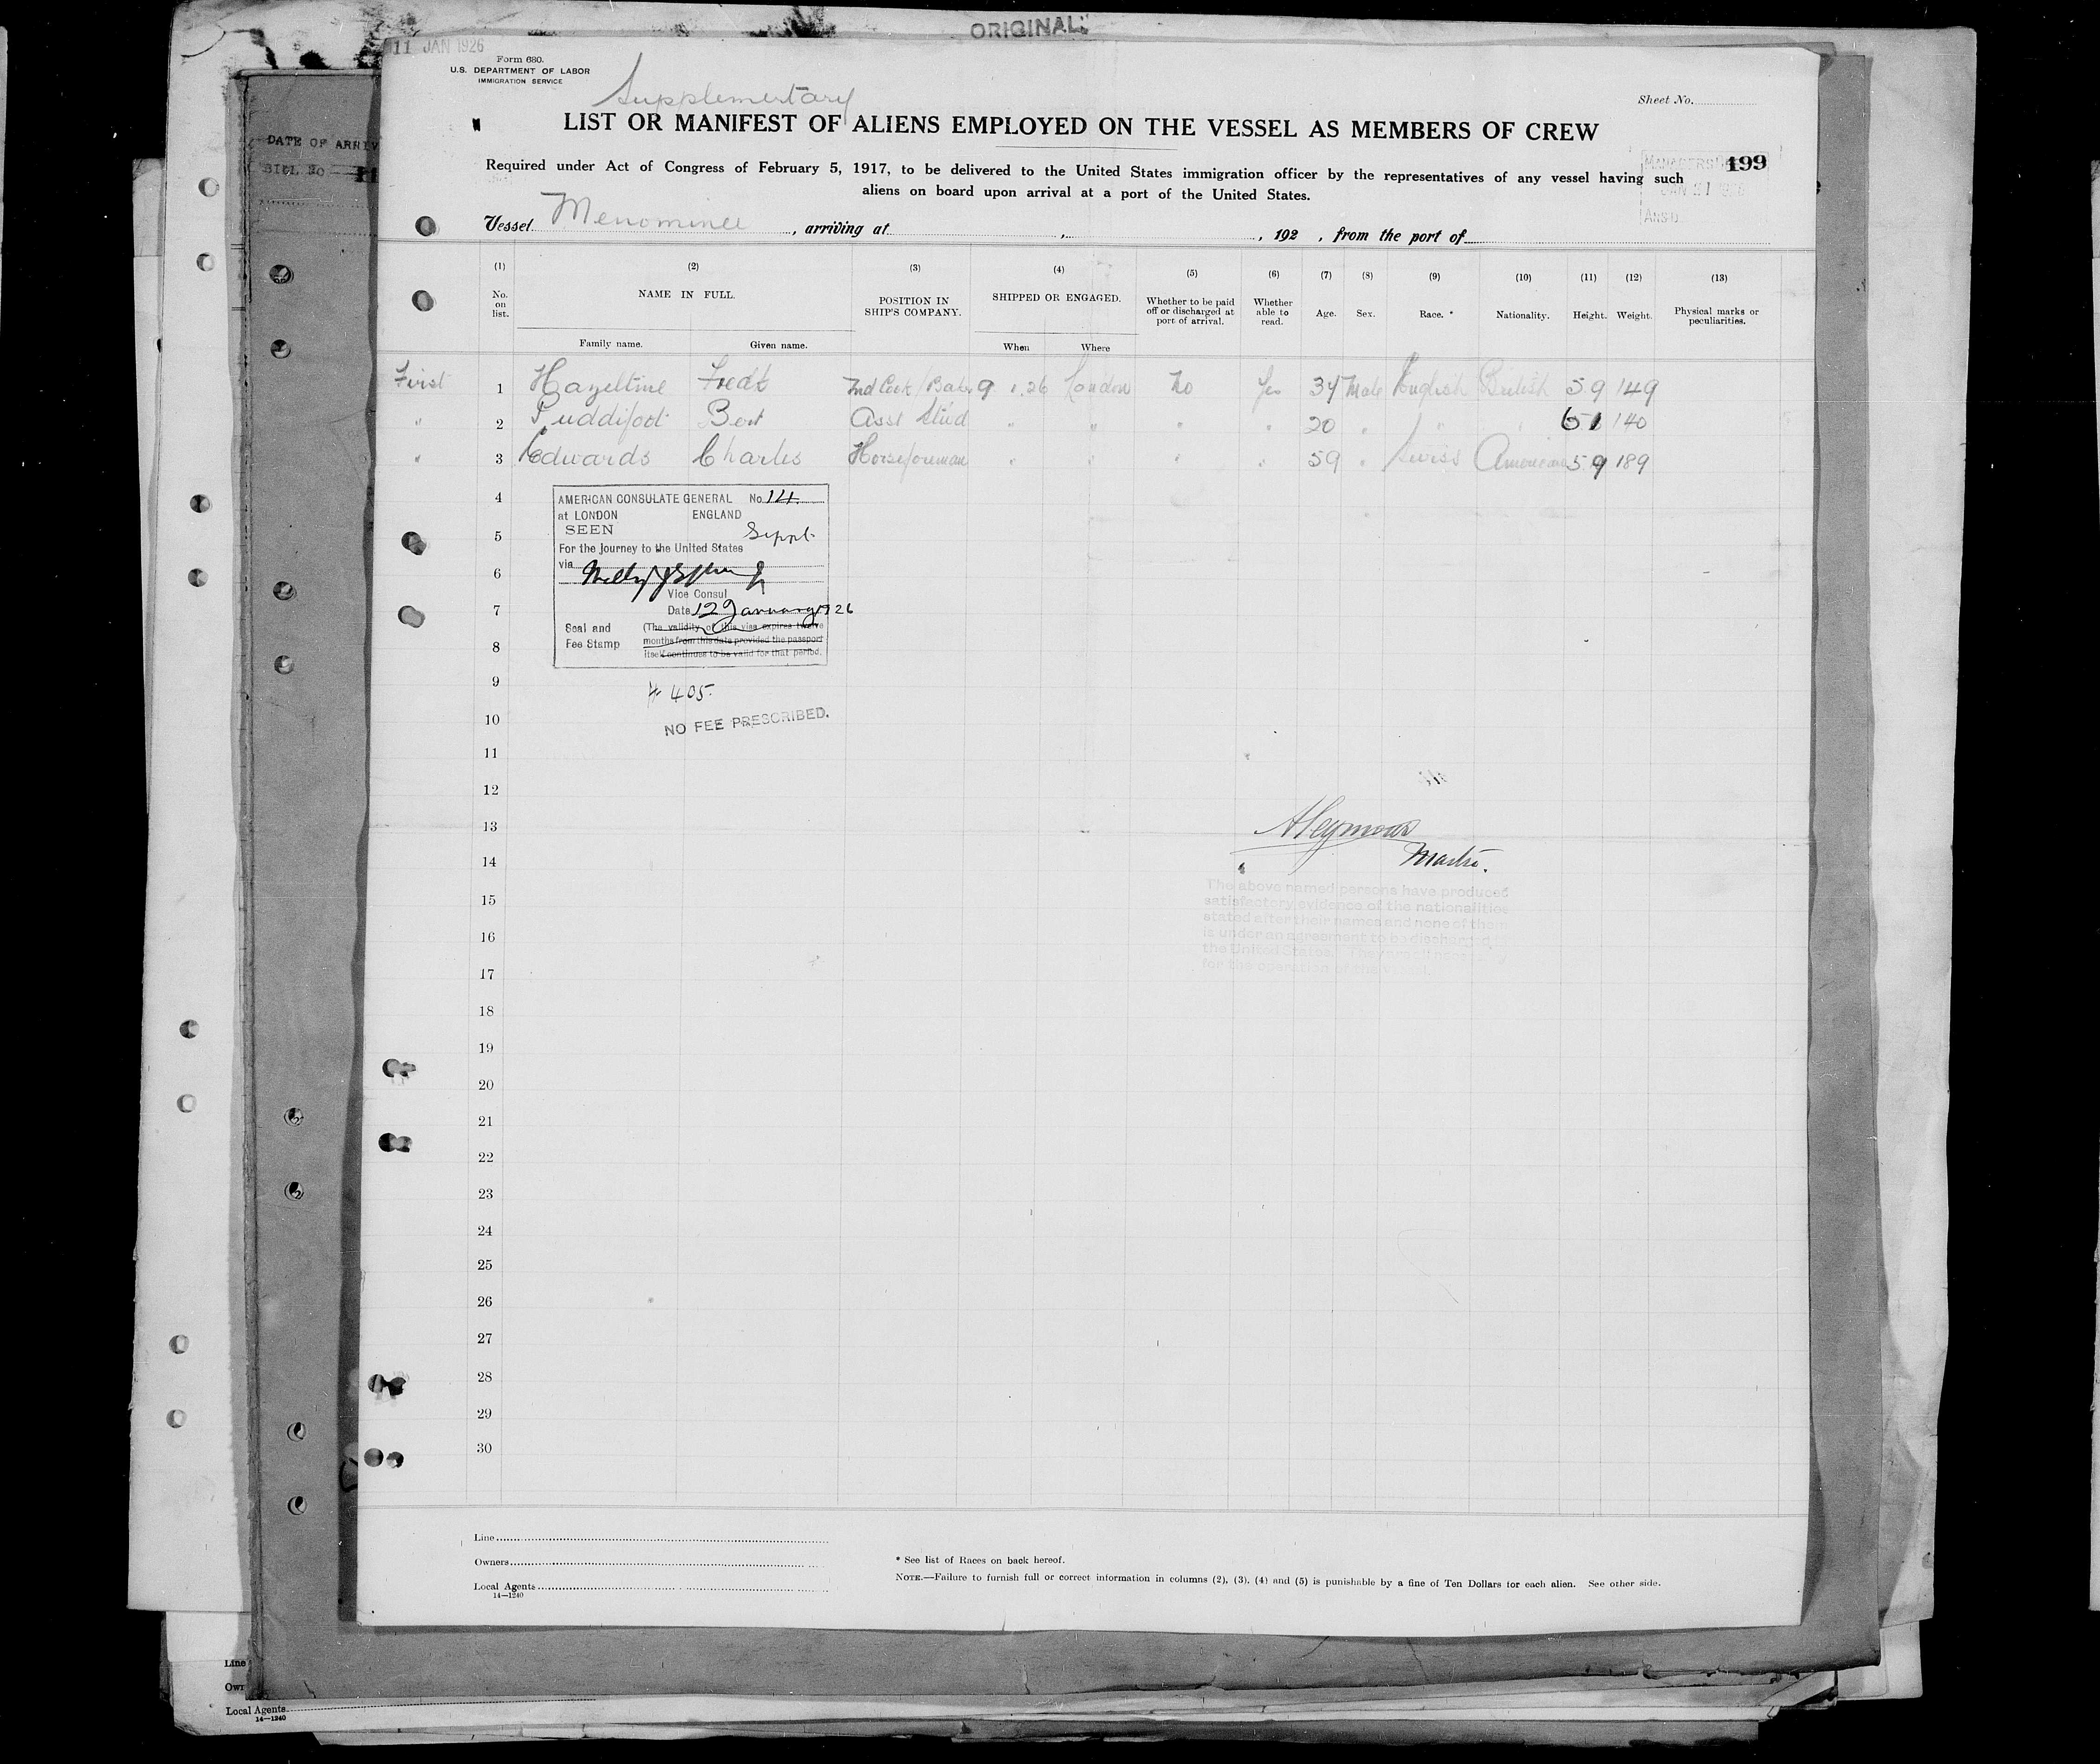 ORIGINAL
11 JAN 1926
Form 680.
U.S. DEPARTMENT OF LABOR
IMMIGRATION SERVICE
Supplementary
Sheet No.
LIST OR MANIFEST OF ALIENS EMPLOYED ON THE VESSEL AS MEMBERS OF CREW
Required under Act of Congress of February 5, 1917, to be delivered to the United States immigration officer by the representatives of any vessel having such
aliens on board upon arrival at a port of the United States.
199
JAN 21
Vessel Menominee, arriving at , , 192 , from the port of
DATE OF ARRIV
BILL NO
(1) (2) (3) (4) (5) (6) (7) (8) (9) (10) (11) (12) (13)
No. on list. NAME IN FULL. POSITION IN SHIP'S COMPANY. SHIPPED OR ENGAGED. Whether to be paid off or discharged at port of arrival. Whether able to read. Age. Sex. Race. * Nationality. Height. Weight. Physical marks or peculiarities.
Family name. Given name. When Where
First 1 Hazeltine Fredk 2nd Cook/Baker 9 1.26 London No Yes 34 Male English British 5 9 149
" 2 Puddifoot Bert Asst Stwd " " " " 20 " " " 5 1 140
" 3 Edwards Charles Horseforeman " " " " 59 " Swiss American 5 9 189
4
AMERICAN CONSULATE GENERAL No. 14
at LONDON ENGLAND
SEEN
5
Suppl.
For the journey to the United States
via
6
Vice Consul
7
Date 12 January 1926
Seal and
Fee Stamp
(The validity of this visa expires twelve
months from this date provided the passport
itself continues to be valid for that period.
8
9
# 405.
10
NO FEE PRESCRIBED.
11
12
13
A Seymour
14
Master.
The above named persons have produced
15
satisfactory evidence of the nationalities
stated after their names and none of them
16
is under an agreement to be discharged
the United States.
17
for the operation of the vessel.
18
19
20
21
22
23
24
25
26
27
28
29
30
Line
Owners
Local Agents
14—1240
* See list of Races on back hereof.
NOTE.—Failure to furnish full or correct information in columns (2), (3), (4) and (5) is punishable by a fine of Ten Dollars for each alien. See other side.
Line
Own
Local Agents
14—1240